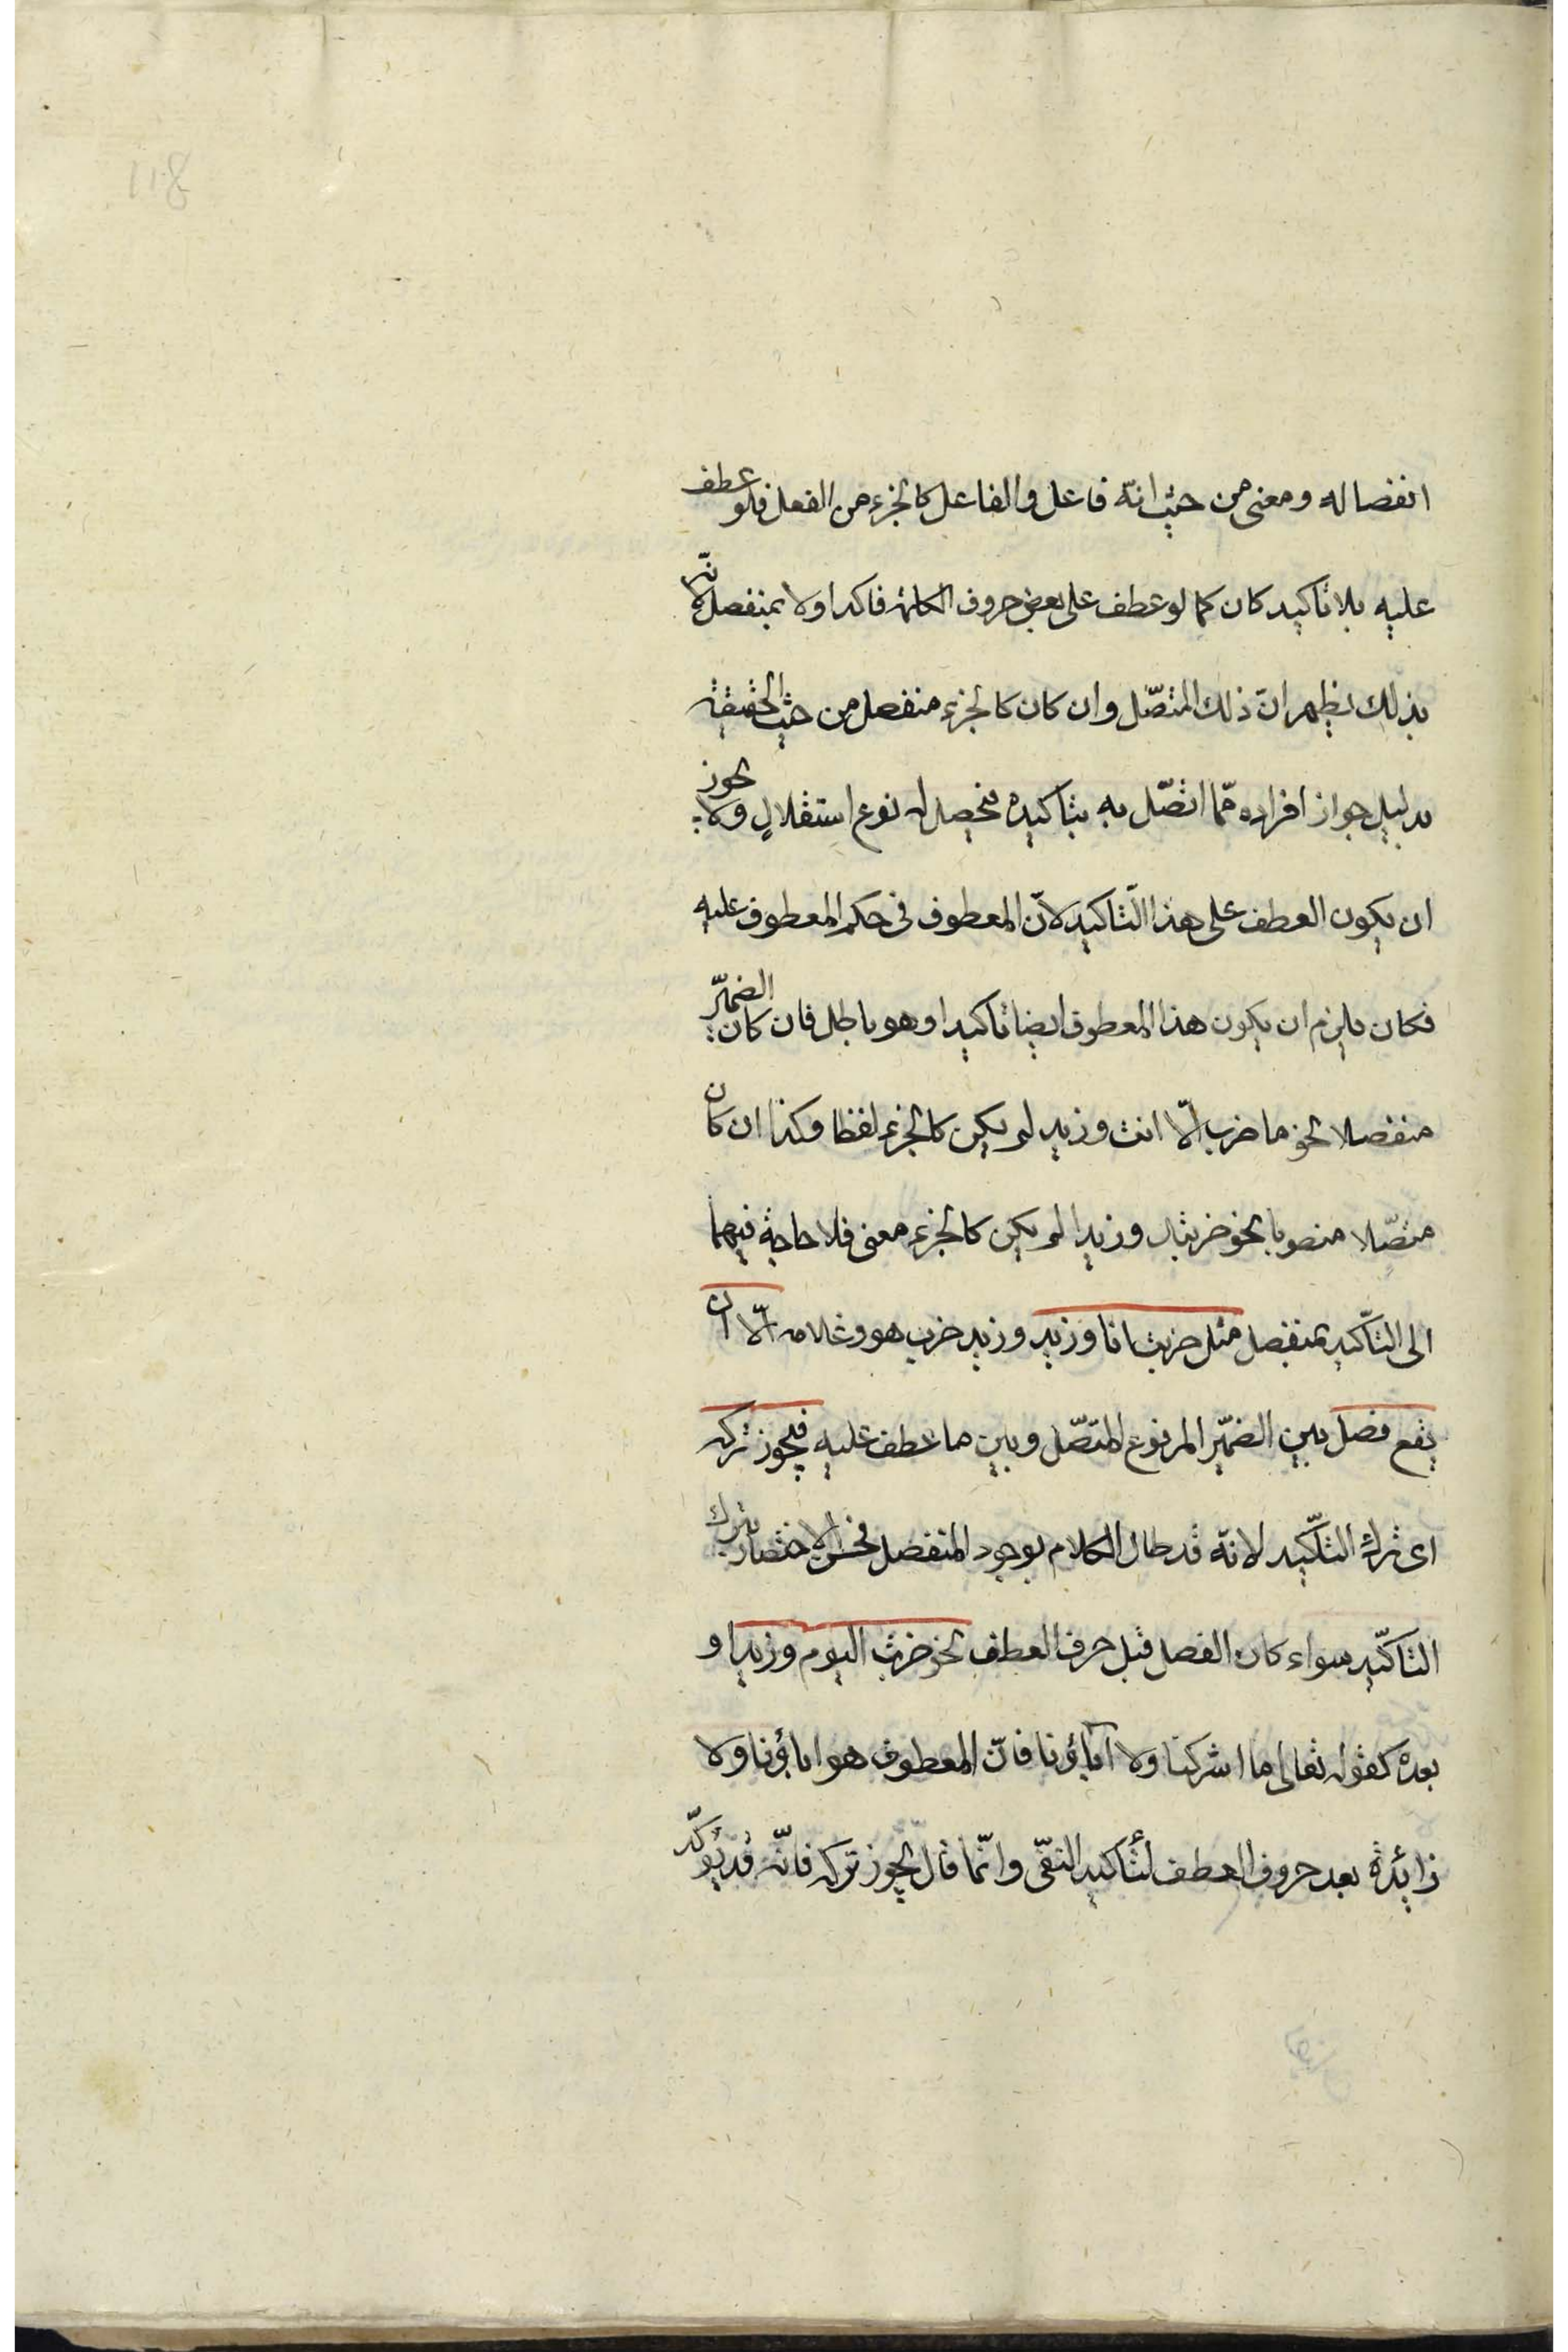 انفصاله ومعنى من حيث انّه فاعل والفاعل كالجزء من الفعل فلو عطف
عليه بلا تأكيد كان كما لو عطف على بعض حروف الكلمة فاكد اولا بمنفصل لانّه
بذلك يظهر انّ ذلك المتصّل وان كان كالجزء منفصل من حيث الحقيقة
بدليل جواز افراده ممّا اتصّل به بتأكيده فيحصل له نوع استقلالٍ ولا يجوز
ان يكون العطف على هذا التّاكيد لانّ المعطوف فى حكم المعطوف عليه
فكان يلزم ان يكون هذا المعطوف ايضا تأكيدا وهو باطل فان كان الضميّر
منفصلا نحو ما ضرب الّا انت وزيد لم يكن كالجزء لفظا وكذا ان كان
متصّلا منصوبا نحو ضربتك وزيدا لم يكن كالجزء معنى فلا حاجة فيهما
الى التّأكيد بمنفصل مثل ضربت انا وزيد وزيد ضرب هو وغلامه الّا ان
يقع فصل بين الضميّر المرفوع المتصّل وبين ما عطف عليه فيجوز تركه
اى ترك التأكّيد لانّه قد طال الكلام بوجود المنفصل فحسن الاختصار بترك
التأكّيد سواء كان الفصل قبل حرف العطف نحو ضربت اليوم وزيدا و
بعده كقوله تعالى ما اشركنا ولا آباؤنا فانّ المعطوف هو اباؤنا ولا
زايدة بعد حروف العطف لتأكيد النفّى وانّما قال يجوز تركه فانّه قد يؤكّد
118